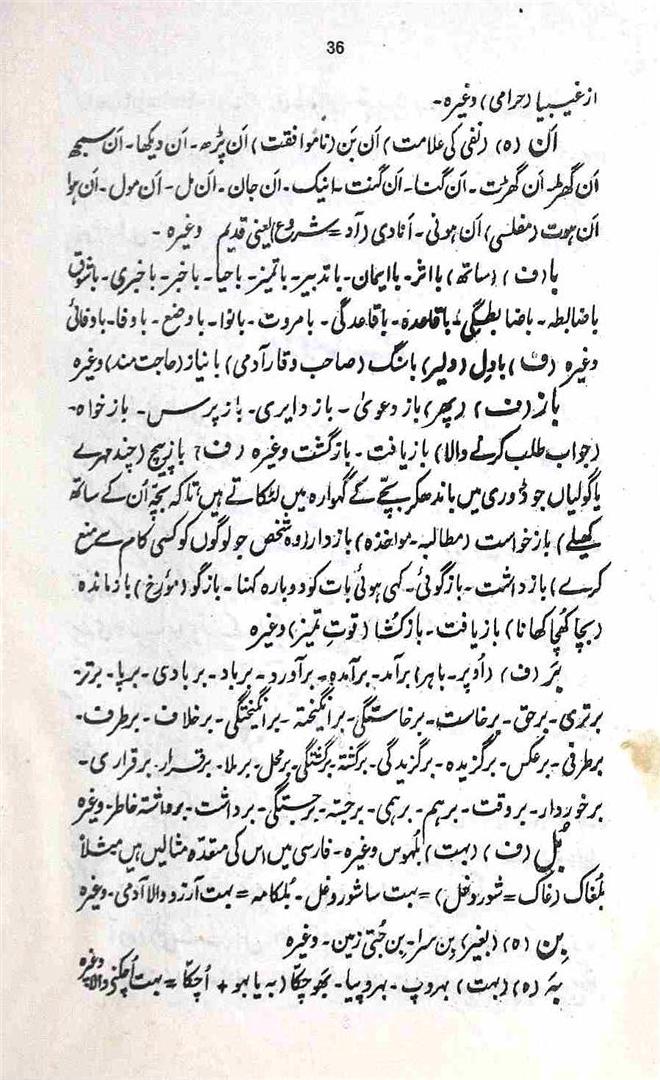 36
از غیبیا (حرامی) وغیرہ۔
اَن (ہ) (نفی کی علامت) اَن بَن (ناموافقت) اَن پڑھ۔ اَن دیکھا۔ اَن سمجھ
اَن گھڑ۔ اَن گھڑت۔ اَن گنا۔ اَن گنت۔ انیک۔ اَن جان۔ اَن مل۔ اَن مول۔ اَن ہوا
اَن ہوت (مفلسی) اَن ہونی۔ اَنادی (آد = شروع) یعنی قدیم وغیرہ۔
با (ف) (ساتھ) بااثر۔ باایمان۔ باتدبیر۔ باتمیز۔ باحیا۔ باخبر۔ باخبری۔ باذوق
باضابطہ۔ باضابطگی۔ باقاعدہ۔ باقاعدگی۔ بامروت۔ بانوا۔ باوضع۔ باوفا۔ باوفائی
وغیرہ (ف) بادِل (دلیر) باسنگ (صاحب وقار آدمی) بانیاز (حاجت مند) وغیرہ
باز (ف) (پھر) باز دعویٰ۔ باز دایری۔ باز پرس۔ باز خواہ۔
(جواب طلب کرنے والا) بازیافت۔ بازگشت وغیرہ (ف) بازپیچ (چند مہرے
یا گولیاں جو ڈوری میں باندھ کر بچّے کے گہوارہ میں لٹکاتے ہیں تاکہ بچّہ اُن کے ساتھ
کھیلے) بازخواست (مطالبہ۔ مواخذہ) بازدار (وہ شخص جو لوگوں کو کسی کام سے منع
کرے) بازداشت۔ بازگوئی۔ کہی ہوئی بات کو دوبارہ کہنا۔ بازگو (مؤرخ) بازماندہ
(بچا کھچا کھانا) بازیافت۔ بازکشا (قوتِ تمیز) وغیرہ
بَر (ف) (اُوپر۔ باہر) برآمد۔ برآمدہ۔ برآورد۔ برباد۔ بربادی۔ برپا۔ برتر۔
برتری۔ برحق۔ برخاست۔ برخاستگی۔ برانگیختہ۔ برانگیختگی۔ برخلاف۔ برطرف۔
برطرفی۔ برعکس۔ برگزیدہ۔ برگزیدگی۔ برگشتہ۔ برگشتگی۔ برمحل۔ برملا۔ برقرار۔ برقراری۔
برخوردار۔ بروقت۔ برہم۔ برہمی۔ برجستہ۔ برجستگی۔ برداشت۔ برداشتہ خاطر۔ وغیرہ
بُل (ف) (بہت) بُلہوس وغیرہ۔ فارسی میں اس کی متعدّد مثالیں ہیں مثلاً
بلغاک (غاک = شور و غل) = بہت سا شور و غل۔ بُلکامہ = بہت آرزو والا آدمی۔ وغیرہ
بِن (ہ) (بغیر) بِن سرا۔ بِن جُتی زمین۔ وغیرہ
بَہ (ہ) (بہت) بہروپ۔ بہروپیا۔ بھوچکا (بہ یا بہو + اُچکّا = بہت اُچکنے والا) وغیرہ